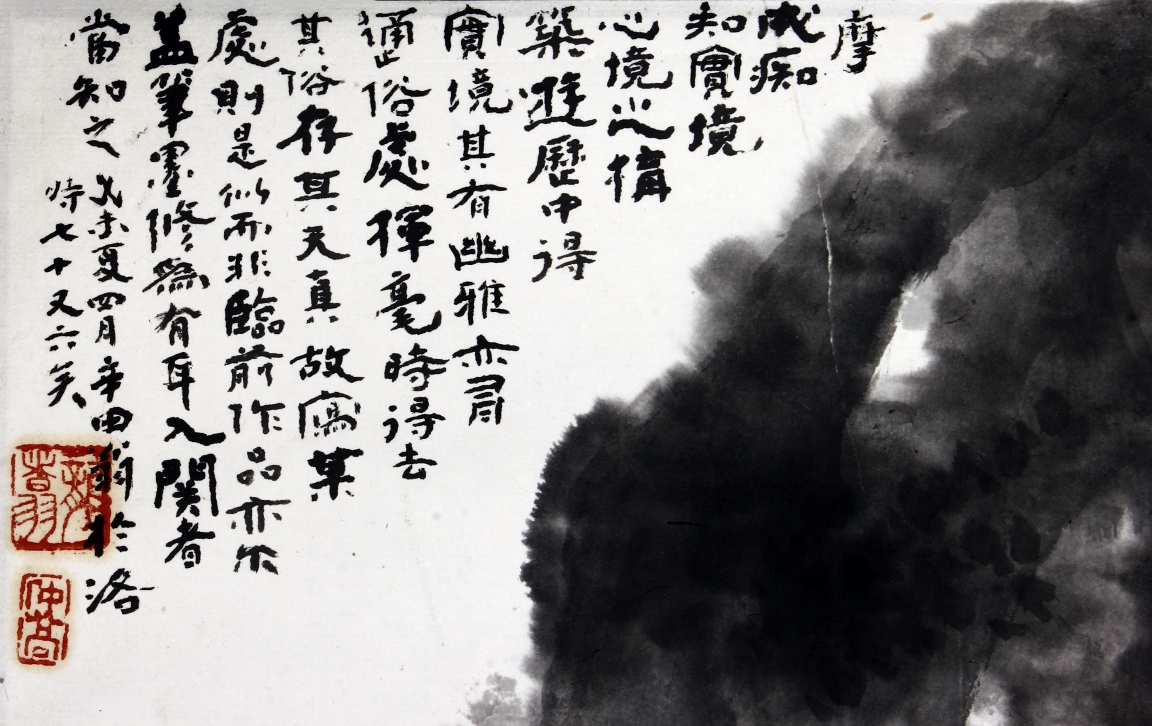 摩
成痴
知實境
心境之構
築遊歷中得
實境其有幽雅亦有
通俗處揮毫時得去
其俗存其天真故寫某
處則是似而非臨前作品亦尓
蓋筆墨修爲有年入關者
當知之 乂未夏四月辛田翁於洛
時七十又六矣
仲高